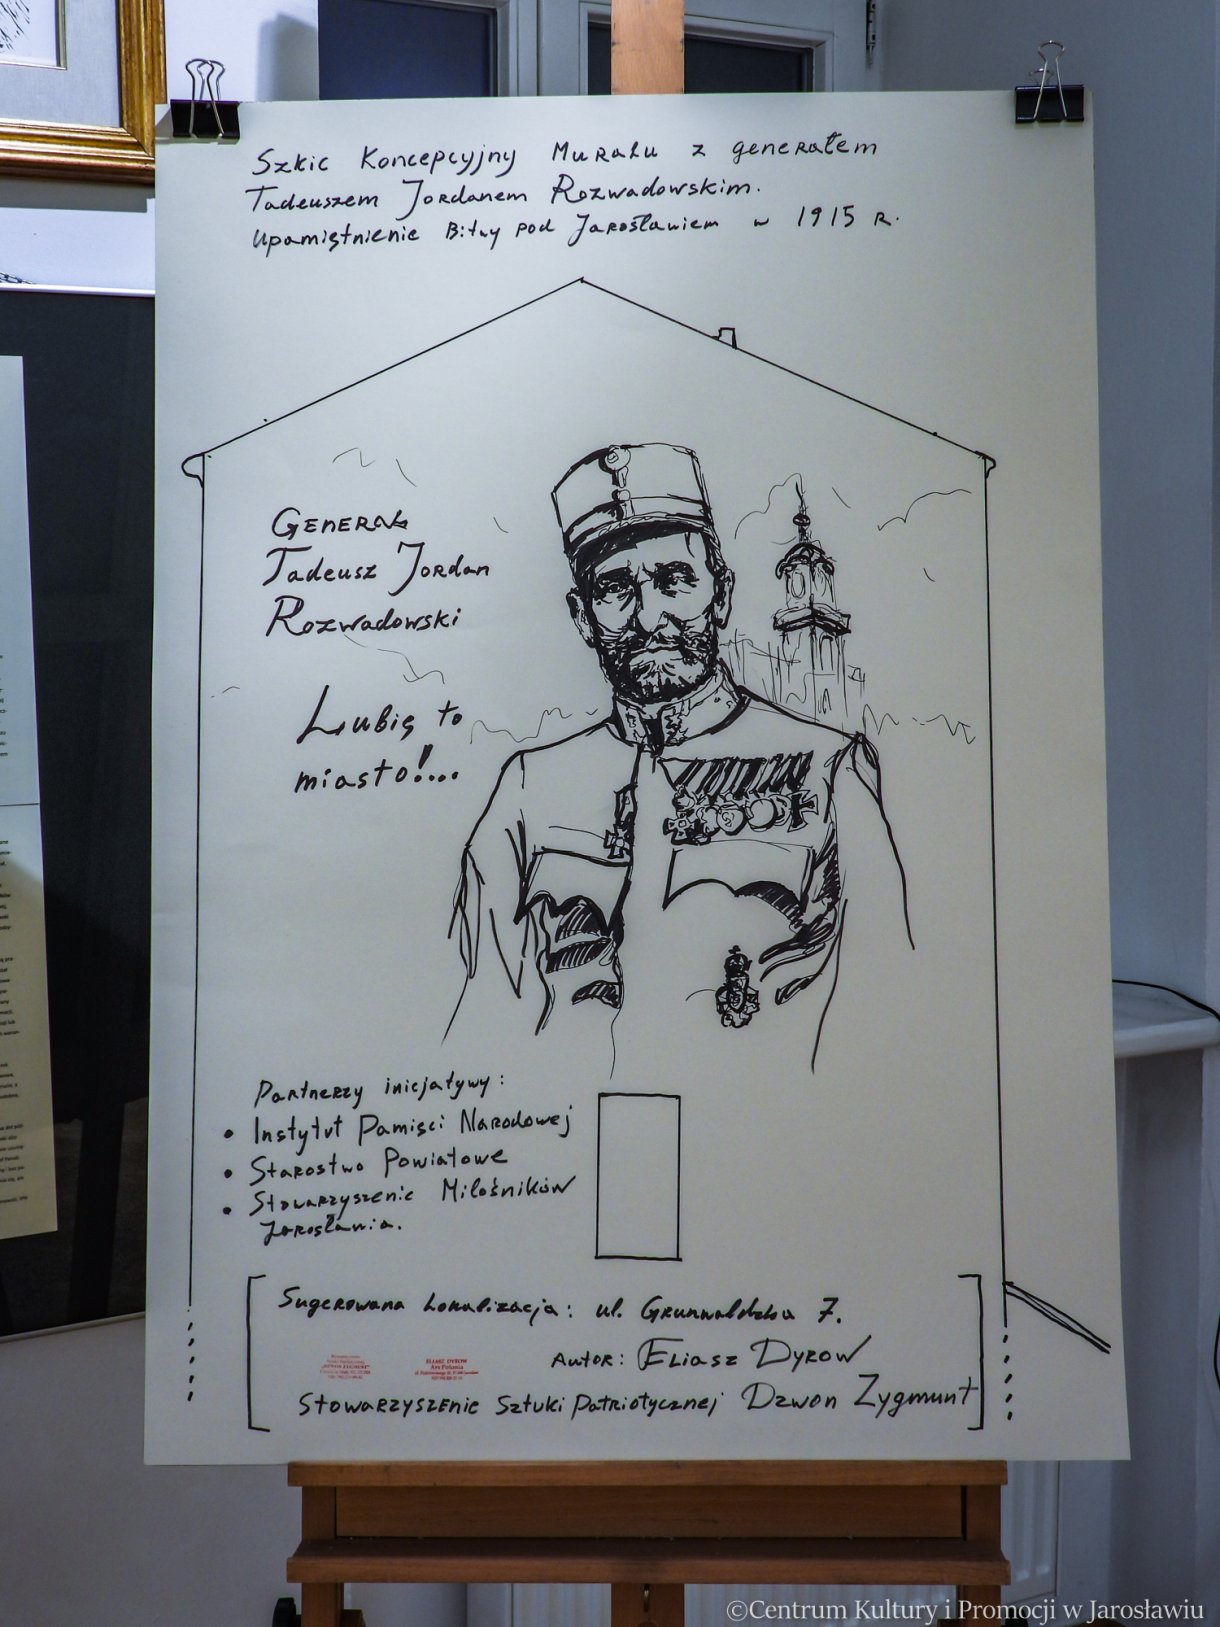 Szkic Koncepcyjny Muralu z generałem
Tadeuszem Jordanem Rozwadowskim.
Upamiętnienie Bitwy pod Jarosławiem w 1915 r.
Generał
Tadeusz Jordan
Rozwadowski
Lubię to
miasto!...
Partnerzy inicjatywy:
• Instytut Pamięci Narodowej
• Starostwo Powiatowe
• Stowarzyszenie Miłośników
Jarosławia.
Sugerowana Lokalizacja: ul. Grunwaldzka 7.
Autor: Eliasz Dyrow
Stowarzyszenie Sztuki Patriotycznej Dzwon Zygmunt
ELIASZ DYROW
Ars Polonia
©Centrum Kultury i Promocji w Jarosławiu